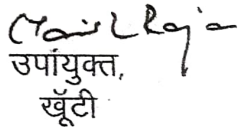 उपायुक्त,
खूँटी